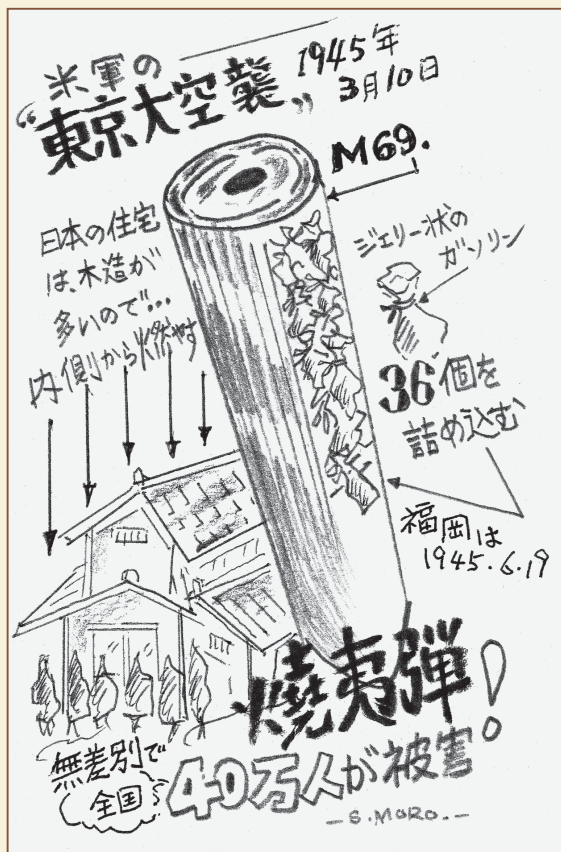 米軍の
“東京大空襲”
1945年
3月10日
M69.
日本の住宅
は、木造が
多いので…
内側から燃やす
ジェリー状の
ガソリン
36個を
詰め込む
福岡は
1945.6.19
焼夷弾!
無差別で
全国
40万人が被害
-S.MORO.-